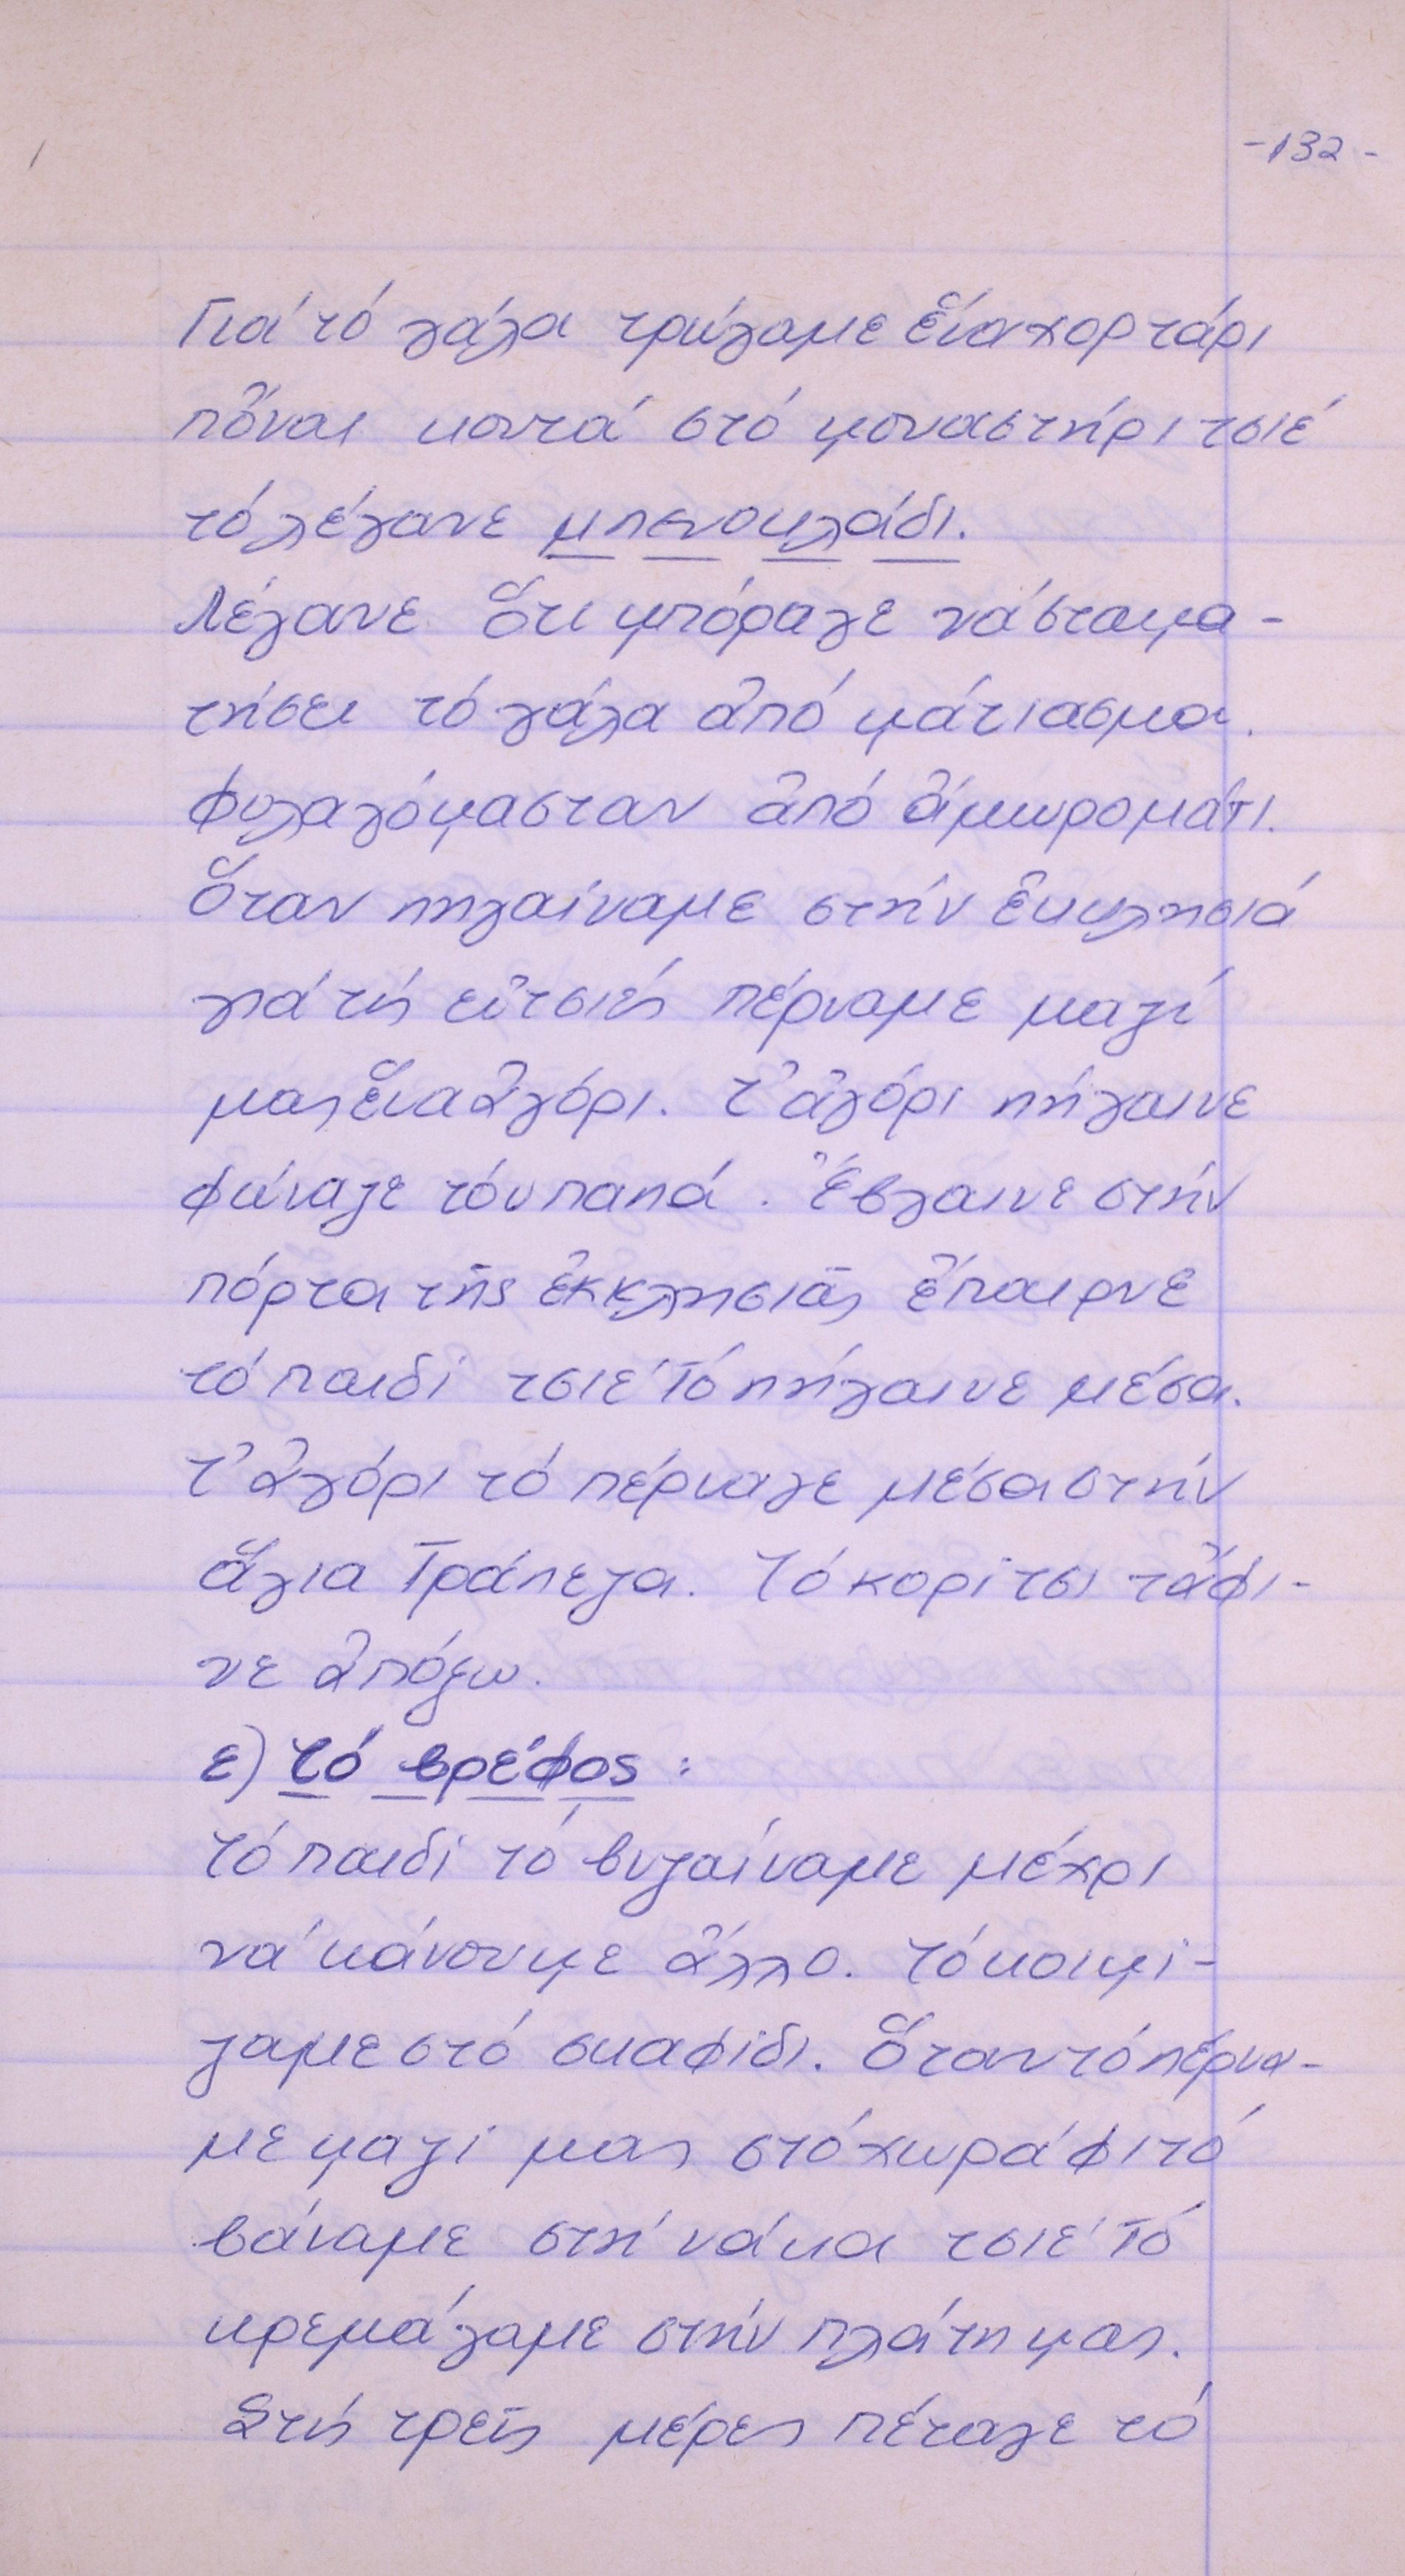 -132-
Γιά τό γάλα τρώγαμε ἕνα χορτάρι
πὄναι κοντά στό μοναστήρι τσιέ
τό λέγανε μπενοκλάδι.
Λέγανε ὅτι μπόραγε νά σταμα-
τήσει τό γάλα ἀπό μάτιασμα.
Φυλαγόμασταν ἀπό ἀμωρομάτι.
Ὅταν πηγαίναμε στήν ἐκκλησιά
γιά τίς εὐτσιές πέρναμε μαζί
μας ἕνα ἀγόρι. Τ' ἀγόρι πήγαινε
φώναζε τόν παπά. Ἔβγαινε στήν
πόρτα τῆς ἐκκλησιᾶς ἔπαιρνε
τό παιδί τσιέ τό πήγαινε μέσα.
Τ' ἀγόρι τό πέρναγε μέσα στήν
ἅγια Τράπεζα. Τό κορίτσι τἄφι-
νε ἀπόξω.
ε) Τό βρέφος:
Τό παιδί τό βυζαίναμε μέχρι
νά κάνουμε ἄλλο. Τό κοιμί-
ζαμε στό σκαφίδι. Ὅταν τό πέρνα-
με μαζί μας στό χωράφι τό
βάναμε στή νάκα τσιέ τό
κρεμάγαμε στήν πλάτη μας.
Στίς τρεῖς μέρες πέταγε τό